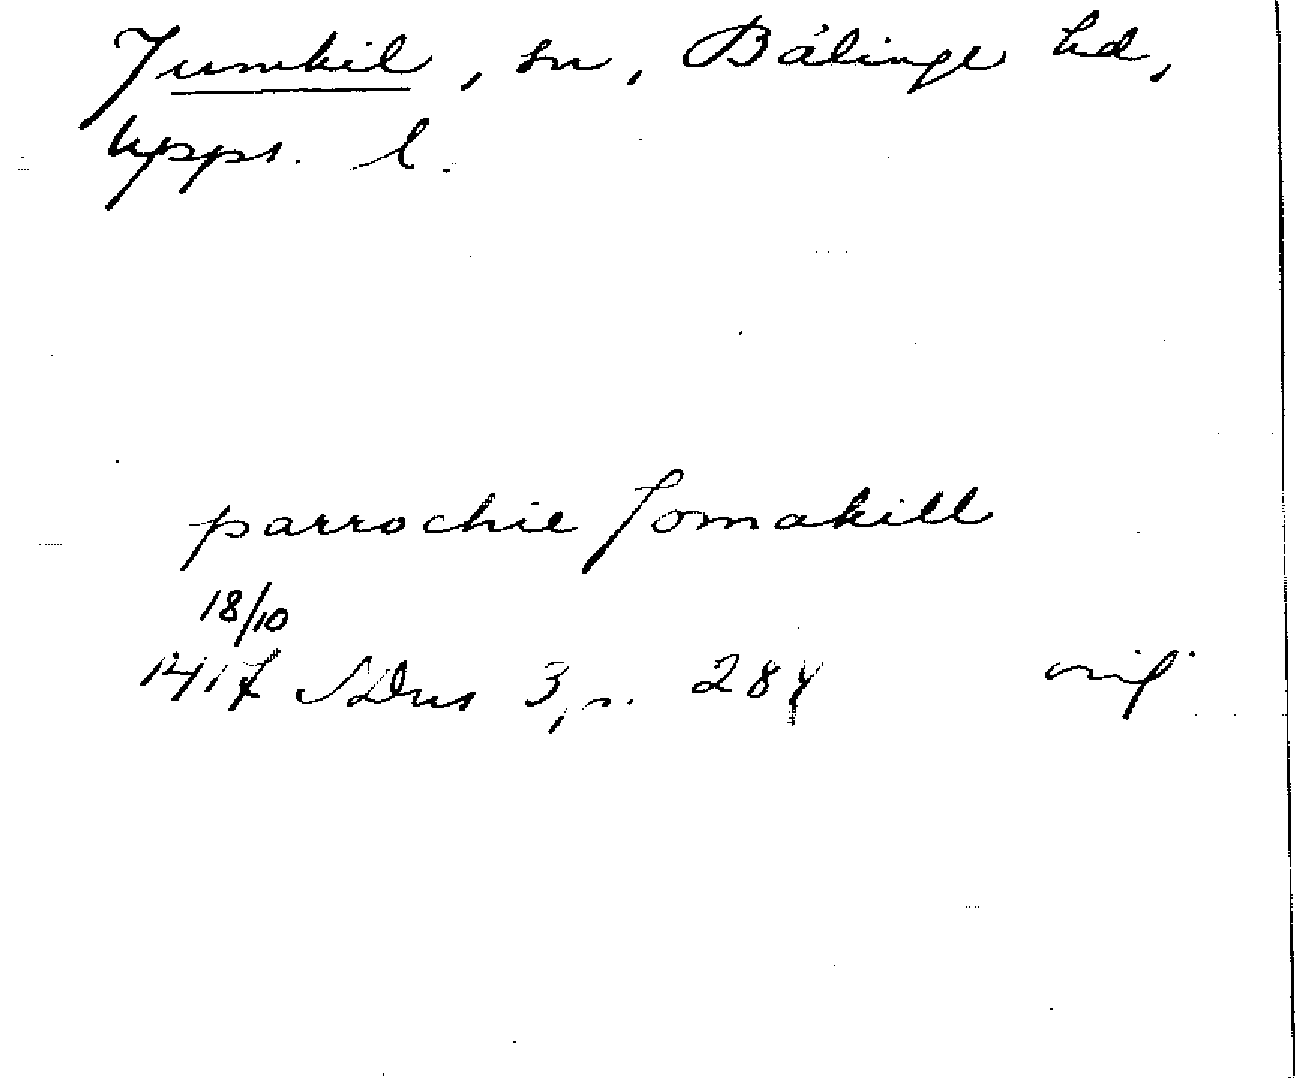 Jumkil, sn, Bälinge hd,
Upps. l.
parrochie Jomakill
18/10
1417 SDns 3, s. 284 orig.